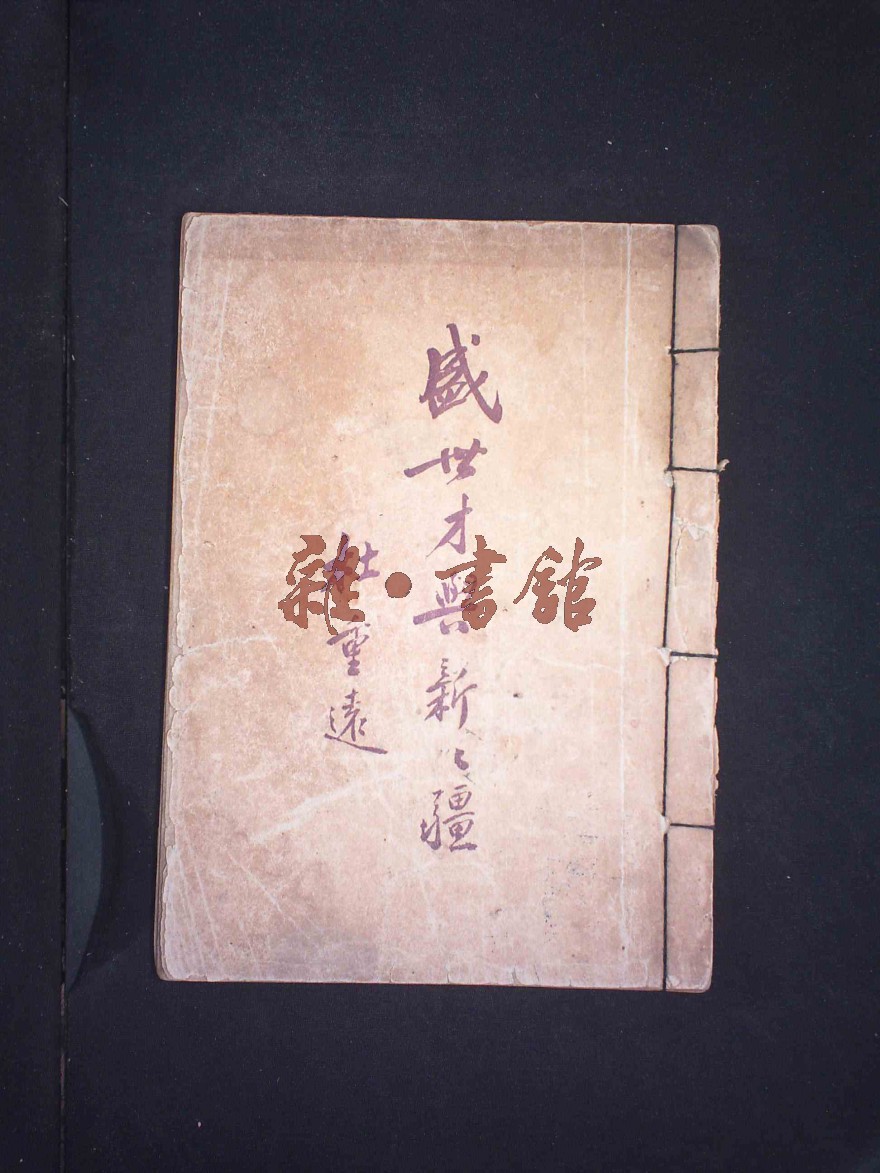 盛世才與新〻疆
杜重遠
雜•書館